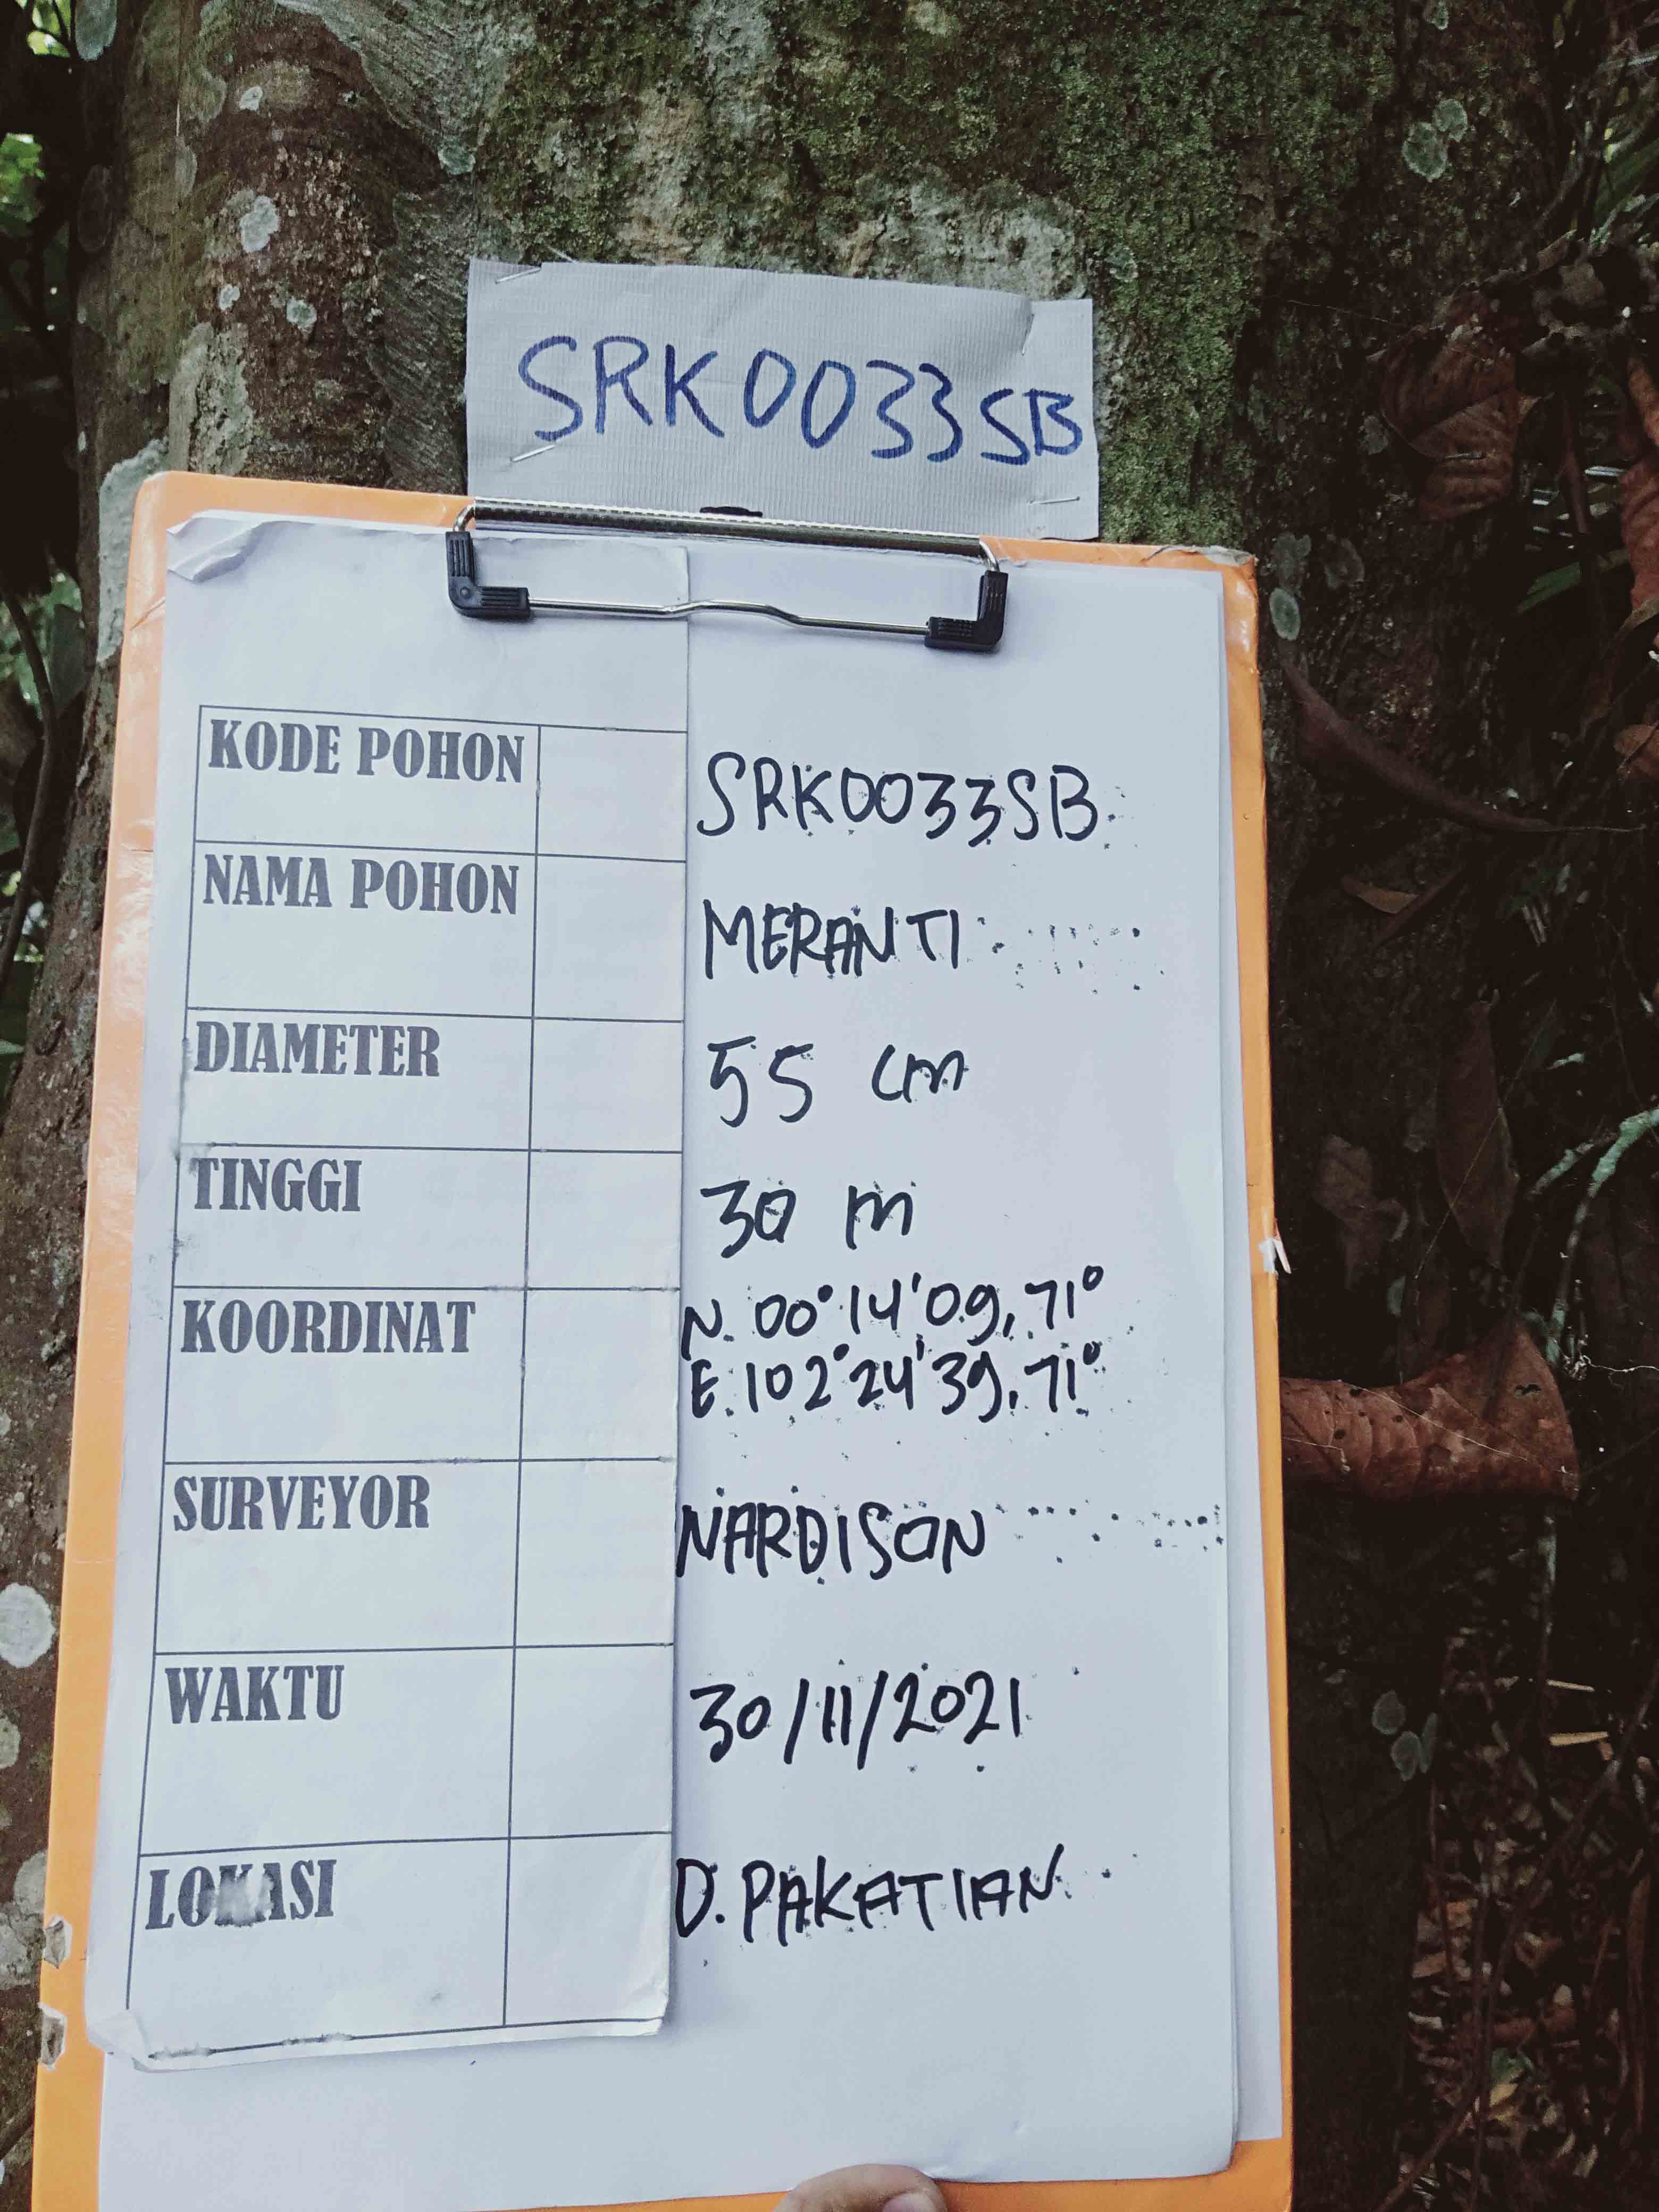 SRK0033SB
KODE POHON SRK0033SB
NAMA POHON MERANTI
DIAMETER 55 cm
TINGGI 30 m
KOORDINAT N. 00°14'09,71°
E.102°24'39,71°
SURVEYOR NARDISON
WAKTU 30/11/2021
LOKASI D. PAKATIAN